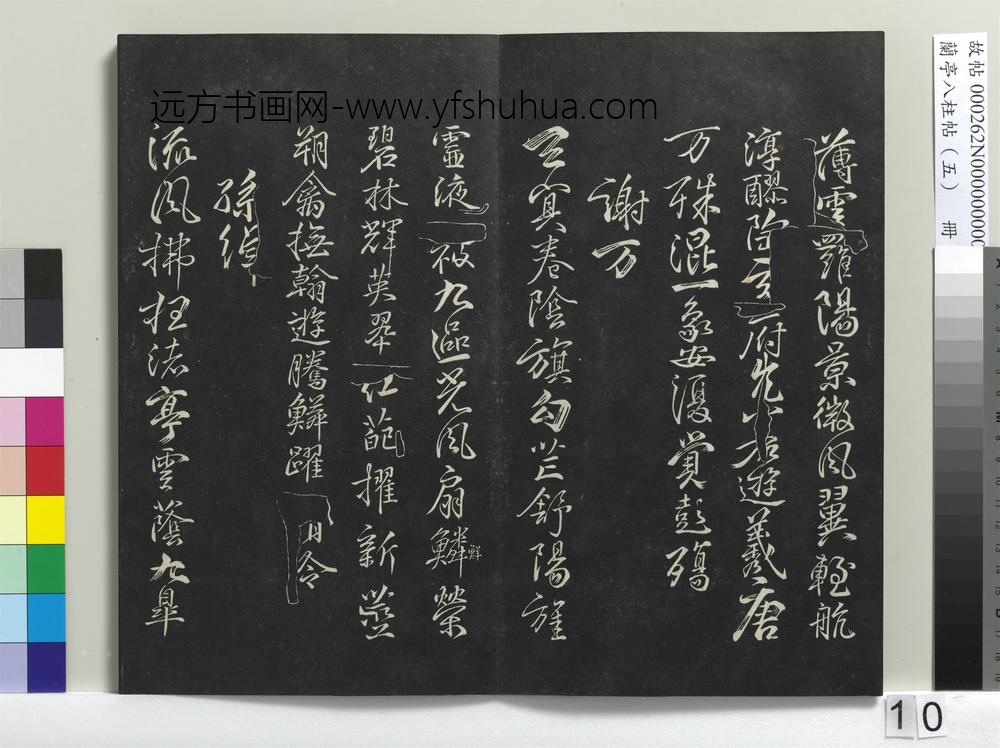 远方书画网-www.yfshuhua.com
薄雲羅陽景微風翼輕航
淳醪陶玄府兀若遊羲唐
万殊混一象安復覺彭殤
謝万
冥卷陰旗勾芒舒陽旌
靈液被九區光風扇鱗鮮榮
碧林輝英翠紅葩擢新莖
翔禽撫翰遊騰鱗躍清泠
孫綽
流風拂枉渚亭雲蔭九皐
故帖 000262N000000000
蘭亭八柱帖（五） 冊
10